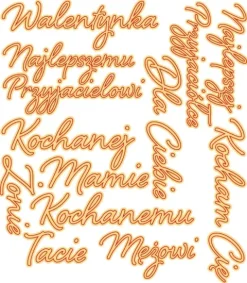 Walentynka
Najlepszemu
Przyjacielowi
Najlepszej
Przyjaciółce
Dla
Ciebie
Kochanej
Mamie
Żonie
Kochanemu
Tacie
Mężowi
Kocham Cię